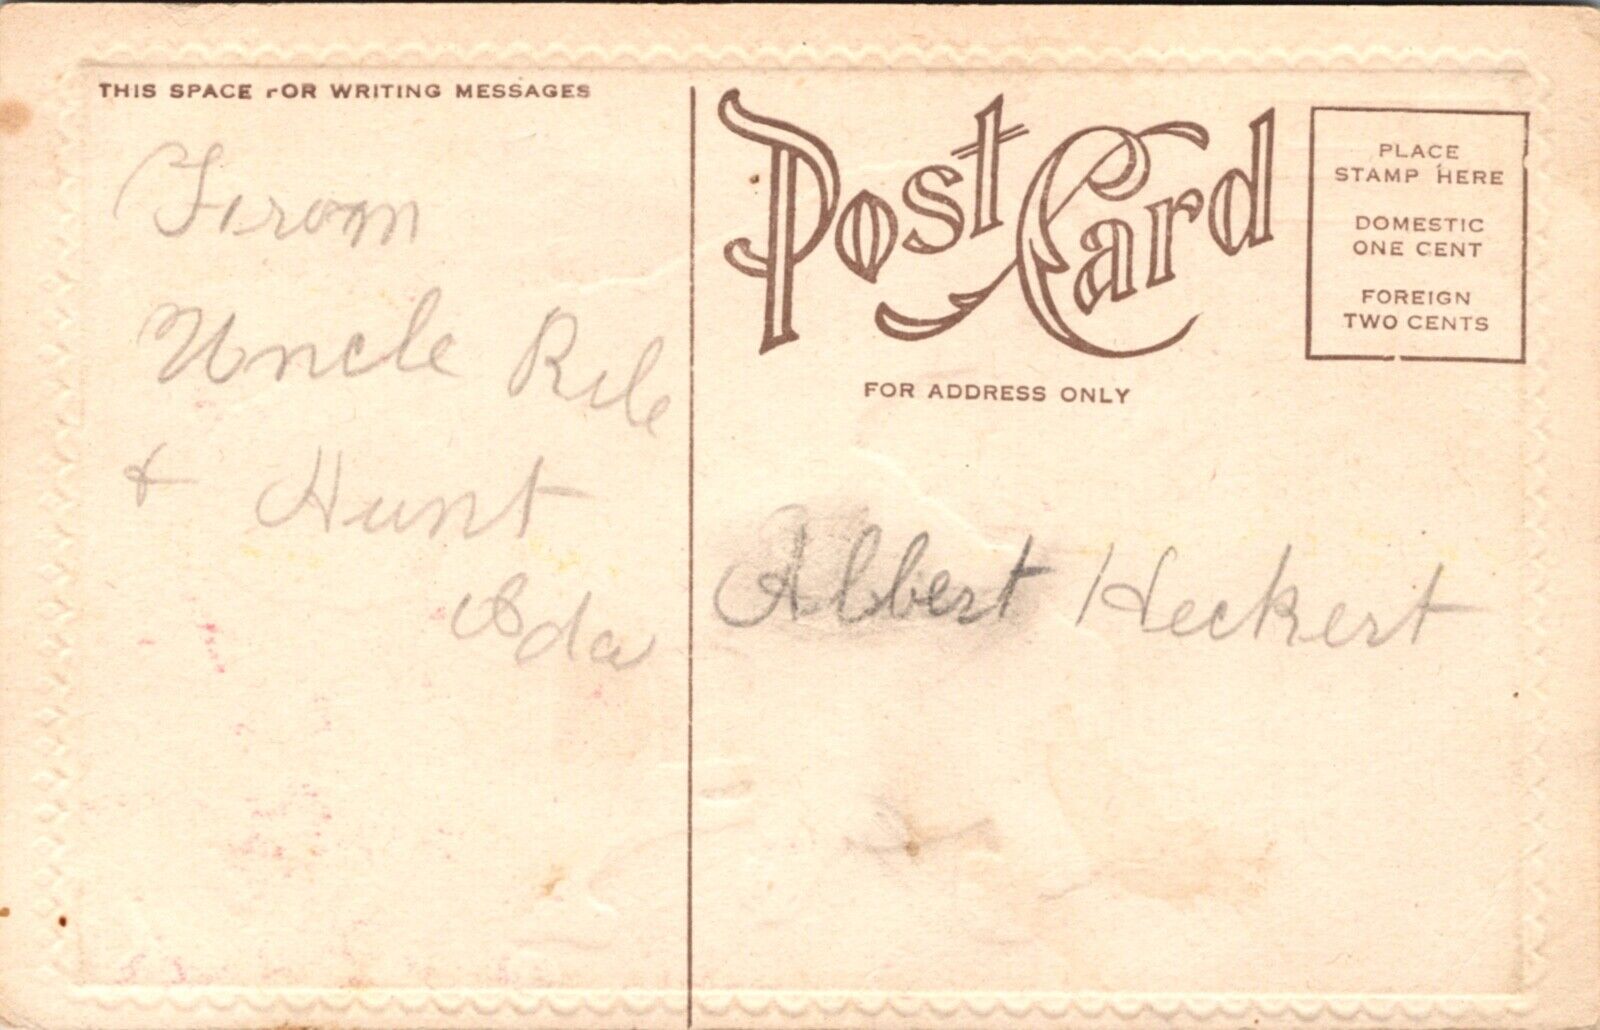 THIS SPACE FOR WRITING MESSAGES
From
Uncle Rile
+ Hunt
Ada
Post Card
PLACE
STAMP HERE
DOMESTIC
ONE CENT
FOREIGN
TWO CENTS
FOR ADDRESS ONLY
Albert Heckert